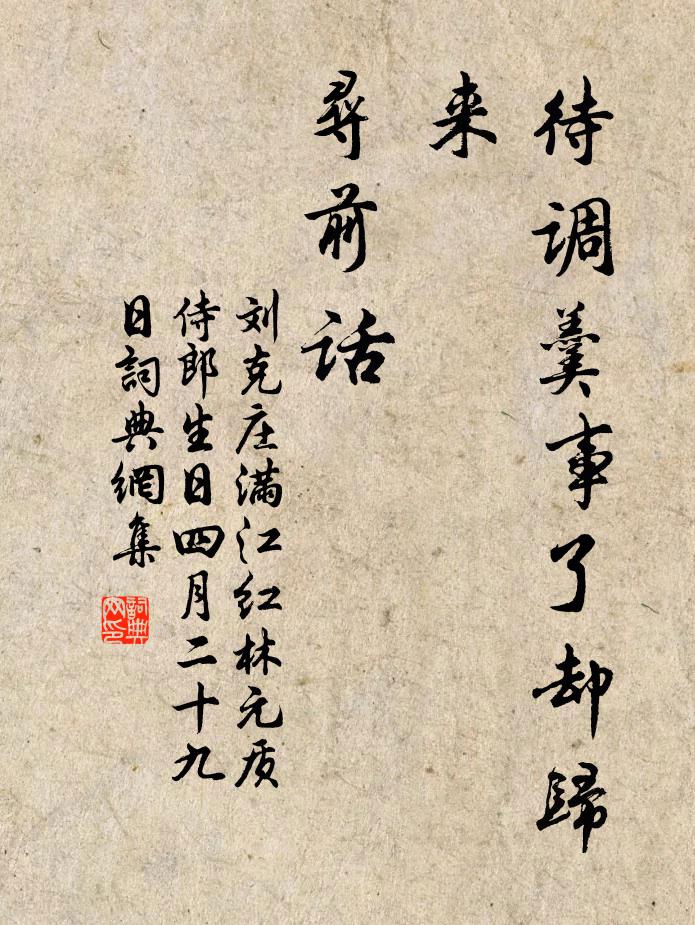 待调羹事了却歸
来
尋前话
刘克庄满江红林元质
侍郎生日四月二十九
日詞典網集
詞典
网印